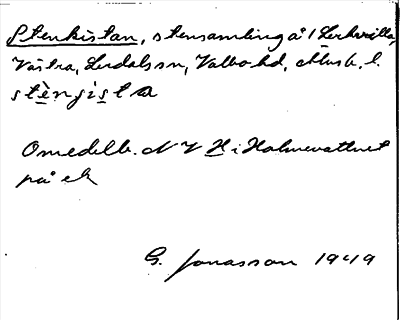 Stenkistan, stensamling å 1 Lerkvilla,
Västra, Lerdals sn, Valbo hd, Älvsb. l.
stènsista
Omedelb. NV H i Holmevattnet
på ek
G. Jonasson 1949